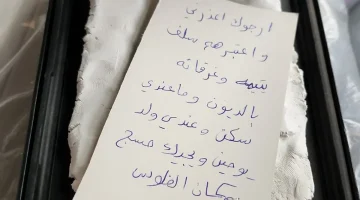 ارجوك اعذرني
و اعتبرهم سلف
يتيمه وغرقانه
بالديون وماعندي
سكن وعندي ولد
يوجين ويجيك
مكان الفلوس